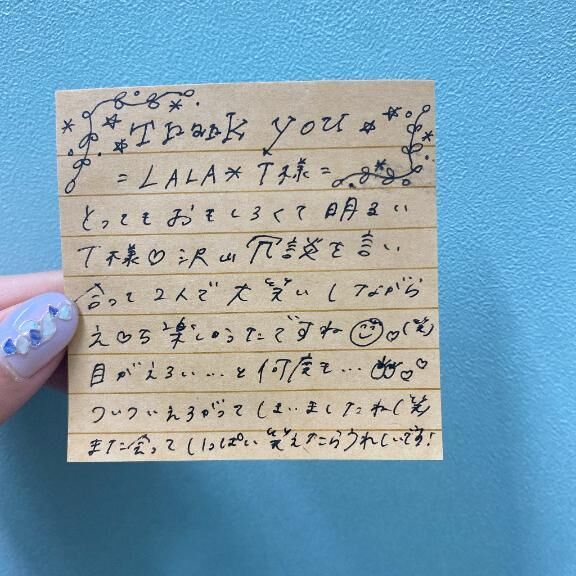 Thank you
= LALA* T様 =
とってもおもしろくて明るい
T様♡沢山冗談を言い
合って2人で大笑いしながら
え♡ち楽しかったですね☺♡(笑)
目がえろい...と何度も...♡♡
ついついえろがってしまいましたね(笑)
また会っていっぱい笑えたらうれしいです!